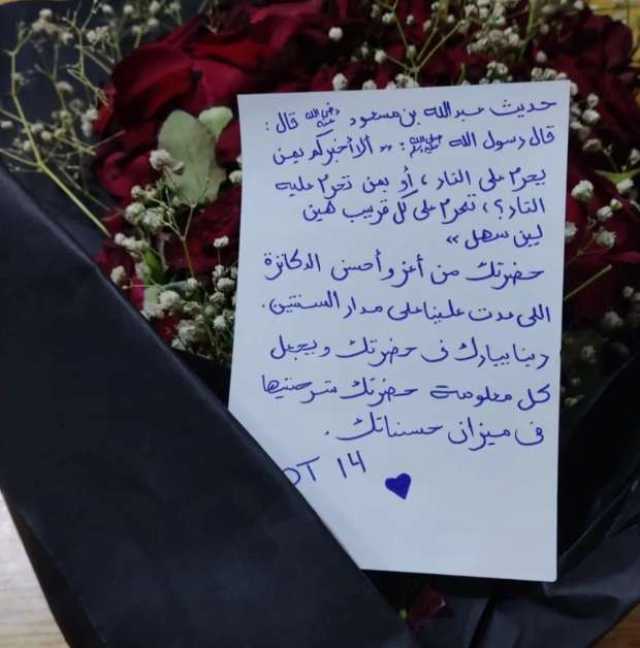 حديث عبدالله بن مسعود رضي الله عنه قال :
قال رسول الله ﷺ : " ألا أخبركم بمن
يحرم على النار ، أو بمن تحرم عليه
النار ؟ ، تحرم على كل قريب هين
لين سهل "
حضرتك من أعز وأحسن الدكاترة
اللى عدت علينا على مدار السنتين .
ربنا يبارك فى حضرتك ويجعل
كل معلومة حضرتك شرحتيها
فى ميزان حسناتك .
OT 14